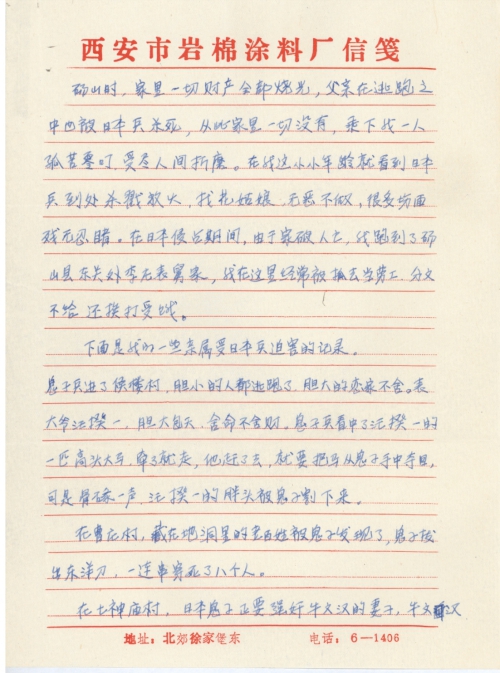 西安市岩棉涂料厂信笺
砀山时，家里一切财产全部烧光，父亲在逃跑之
中也被日本兵杀死，从此家里一切没有，乘下我一人
孤苦零叮，受尽人间折磨。在我这小小年龄就看到日本
兵到处杀戳放火，找花姑娘，无恶不做，很多场面
残无忍睹。在日本侵占期间，由于家破人亡，我跑到了砀
山县东关外李元表舅家，我在这里经常被抓去当劳工，分文
不给还挨打受饿。
下面是我们一些亲属受日本兵迫害的记录。
鬼子兵进了侯楼村，胆小的人都逃跑了，胆大的恋家不舍。表
大爷汪揆一，胆大包天，舍命不舍财。鬼子兵看中了汪揆一的
一匹高头大马，牵了就走，他赶了去，就要把马从鬼子手中夺回，
可是骨碌一声，汪揆一的胖头被鬼子割下来。
在曹庄村，藏在地洞里的老百姓被鬼子发现了，鬼子拔
出东洋刀，一连串穿死了八个人。
在土神庙村，日本鬼子正要强奸牛文汉的妻子，牛文汉
地址：北郊徐家堡东 电话：6—1406